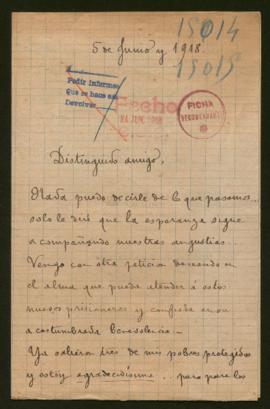 15014
5 de Junio y 1918.
15015
Pedir informes
que se hace
Devolver
Fecho
FICHA
Distinguido amigo,
Nada puedo decirle de lo que pasamos...
solo le diré que la esperanza sigue
acompañando nuestras angustias.
Vengo con otra petición deseando en
el alma que pueda atender á estos
nuevos prisioneros y confiada en su
acostumbrada benevolencia—
Ya salieron tres de mis pobres protegidos
y estoy agradecidísima... pero para los